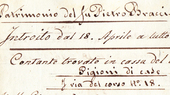 Patrimonio del fu Pietro Bracci
Introito dal 18. Aprile a tutto
Contante trovato in cassa del
Pigioni di case
1 via del corso nº 18.